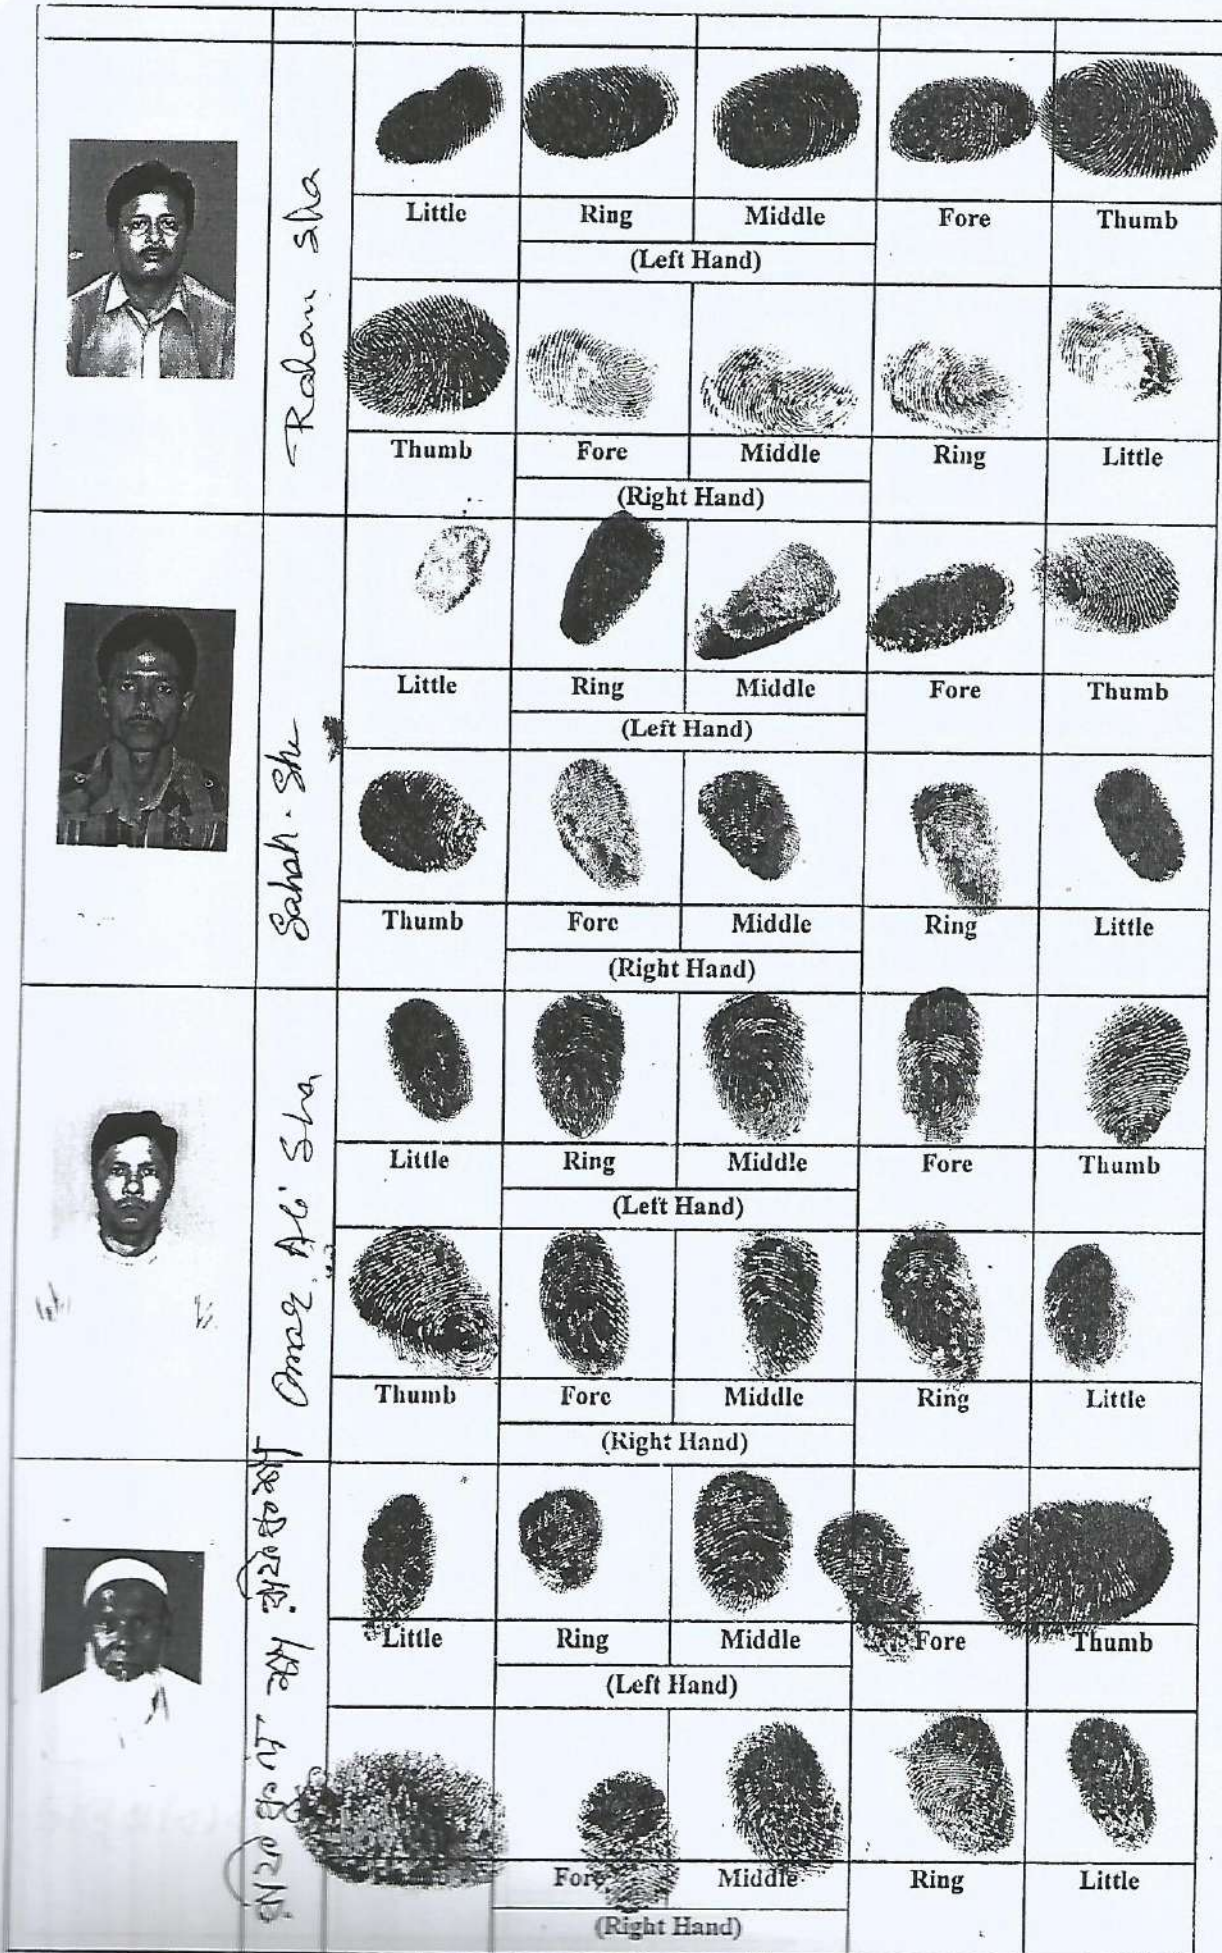 Rohan Sha
Little Ring Middle Fore Thumb
(Left Hand)
Thumb Fore Middle Ring Little
(Right Hand)
Sahah. Sha
Little Ring Middle Fore Thumb
(Left Hand)
Thumb Fore Middle Ring Little
(Right Hand)
Omar Ali Sha
Little Ring Middle Fore Thumb
(Left Hand)
Thumb Fore Middle Ring Little
(Right Hand)
Little Ring Middle Fore Thumb
(Left Hand)
Fore Middle Ring Little
(Right Hand)